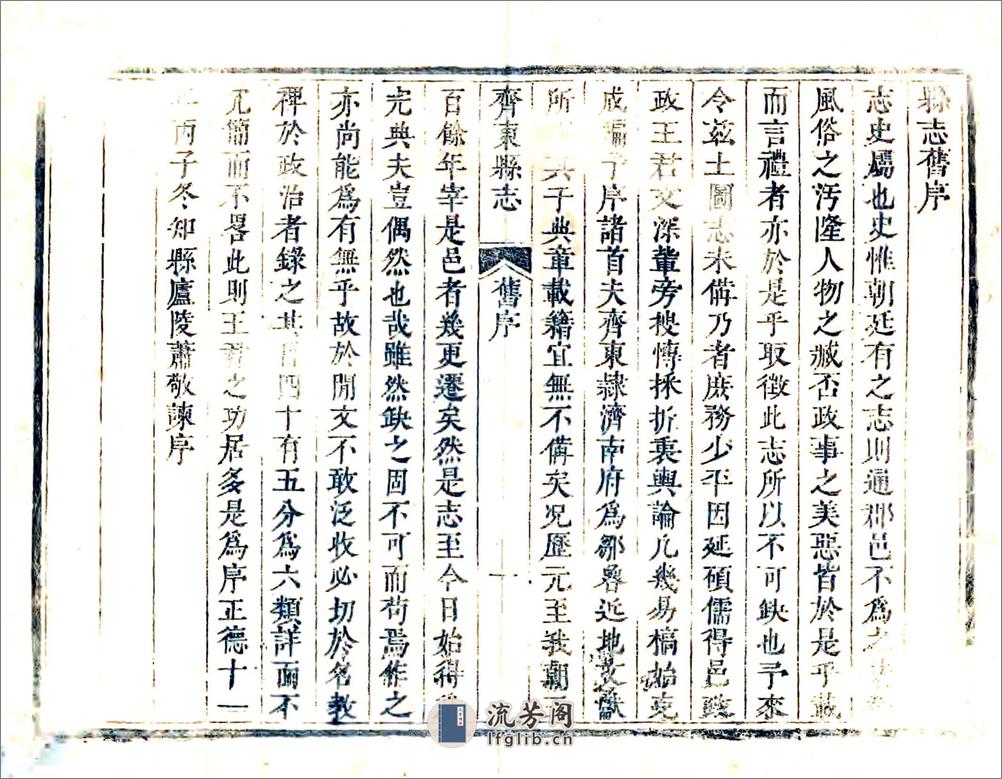 縣志舊序
志史屬也史惟朝廷有之志則通郡邑不爲之
風俗之汚隆人物之臧否政事之美惡皆於是乎載
而言禮者亦於是乎取徵此志所以不可缺也予來
令茲土圖志未備乃者庶務少平因延碩儒得邑致
政王君文深輩旁搜博採折衷輿論凡幾易槁始克
成編予序諸首夫齊東隸濟南府爲鄒魯近地文獻
所 共子典章載籍宜無不備矣况歷元至我朝
齊東縣志 舊序 一
百餘年宰是邑者幾更遷矣然是志至今日始得
完典夫豈偶然也哉雖然缺之固不可而苟焉作之
亦尚能爲有無乎故於閒文不敢泛收必切於名教
裨於政治者錄之其目四十有五分爲六類詳而不
冗簡而不畧此則王君之功居多是爲序正德十一
年丙子冬知縣廬陵蕭敬諫序
流芳阁
lfglib.cn